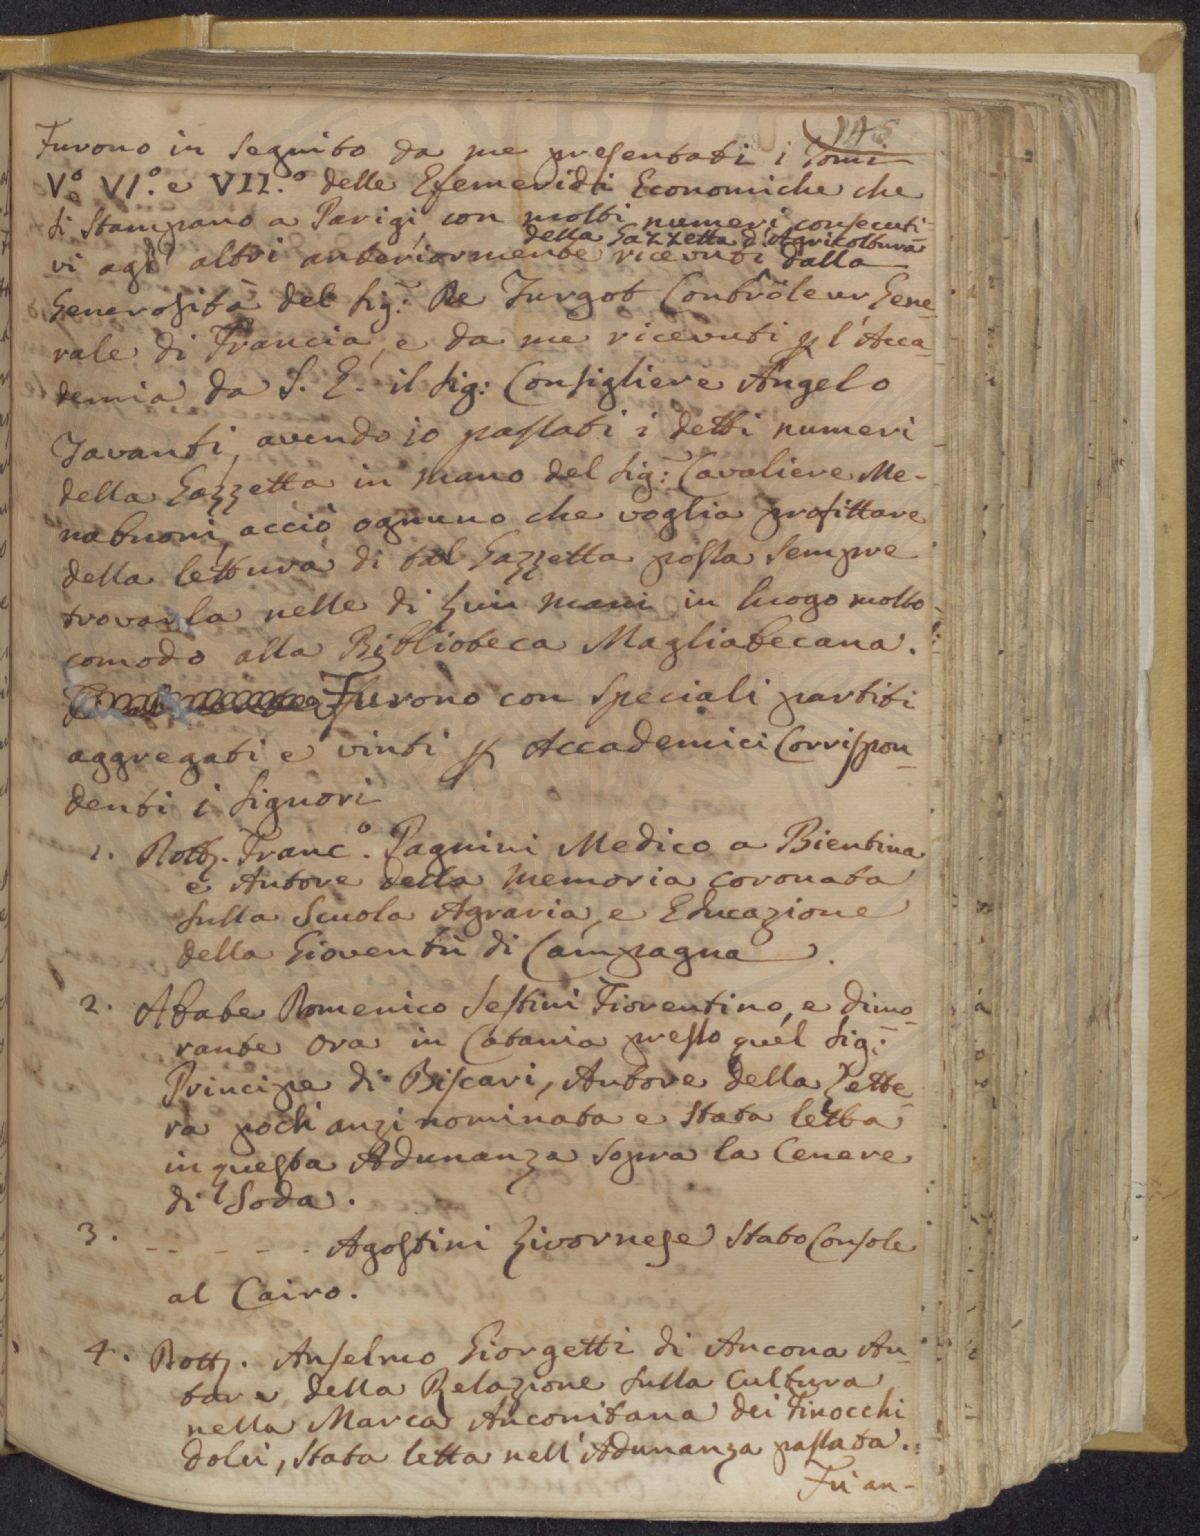 145
Furono in seguito da me presentati i Tomi
V.° VI.° e VII.° delle Efemeridi Economiche che
si stampano a Parigi, con molti numeri consecuti-
della Gazzetta d'Agricoltura
vi agl' altri anteriormente ricevuti dalla
Generosità del Sig.r De Turgot Contrôleur Gene-
rale di Francia, e da me ricevuti p l'Acca-
demia da S. E. il Sig: Consigliere Angelo
Tavanti, avendo io passati i detti numeri
della Gazzetta in mano del Sig: Cavaliere Me-
nabuoni, acciò ognuno che voglia profittare
della lettura di tal Gazzetta possa sempre
trovarla nelle di lui mani in luogo molto
comodo alla Biblioteca Magliabecana.
Furono con speciali partiti
aggregati e vinti p Accademici Corrispon-
denti i Signori
1. Dott. Franc.° Pagnini Medico a Bientina
e Autore della Memoria coronata
sulla Scuola Agraria, e Educazione
della Gioventù di Campagna.
2. Abate Domenico Sestini Fiorentino, e dimo-
rante ora in Catania presso quel Sig:
Principe di Biscari, Autore della Lette-
ra pochi anzi nominata e stata letta
in questa Adunanza sopra la Cenere
di Soda.
3. - - - - - Agostini Livornese stato Console
al Cairo.
4. Dott. Anselmo Giorgetti di Ancona Au-
tore della Relazione sulla Cultura
nella Marca Anconitana dei Finocchi
dolci, stata letta nell'Adunanza passata.
Fu an-